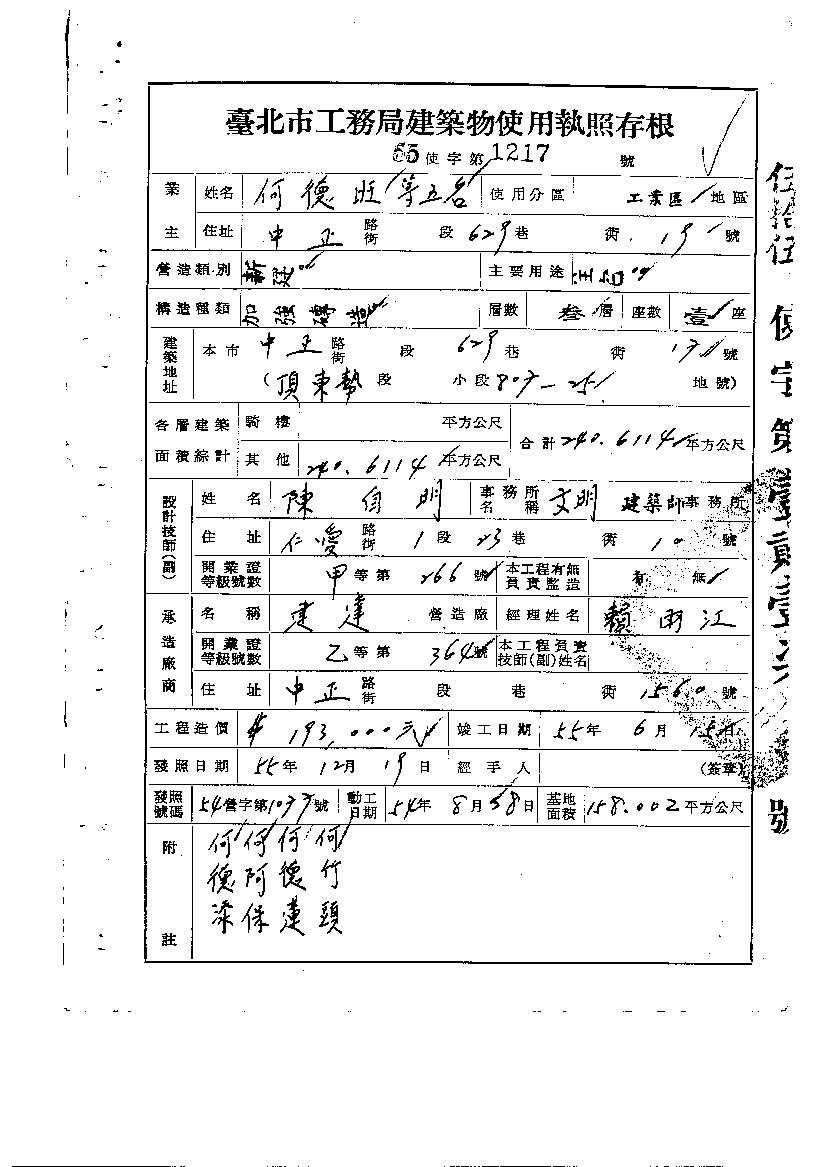 臺北市工務局建築物使用執照存根
55使字第1217號
業主 姓名 何德旺等五名 使用分區 工業區地區
住址 中正路街 段 629巷 街 19號
營造類別 新建 主要用途
構造種類 加強磚造 層數 叁層 座數 壹座
建築地址 本市 中正路街 段 629巷 街 號
(頂東勢段 小段 地號)
各層建築面積綜計 騎樓 平方公尺 合計240.6114平方公尺
其他 240.6114平方公尺
設計技師(副) 姓名 陳 明 事務所名稱 文明 建築師事務所
住址 仁愛路街 1段 23巷 街 10號
開業證等級號數 甲等第266號 本工程有無負責監造 有 無
承造廠商 名稱 建達 營造廠 經理姓名 賴雨江
開業證等級號數 乙等第364號 本工程負責技師(副)姓名
住址 中正路街 段 巷 街 1560號
工程造價 $193,000元 竣工日期 55年6月15日
發照日期 55年12月19日 經手人 (簽章)
發照號碼 54營字第1077號 動工日期 54年8月 日 基地面積 158.002平方公尺
附註
何德添
何阿保
何德蓮
何竹頭
伍拾伍 使字第壹貳壹柒號